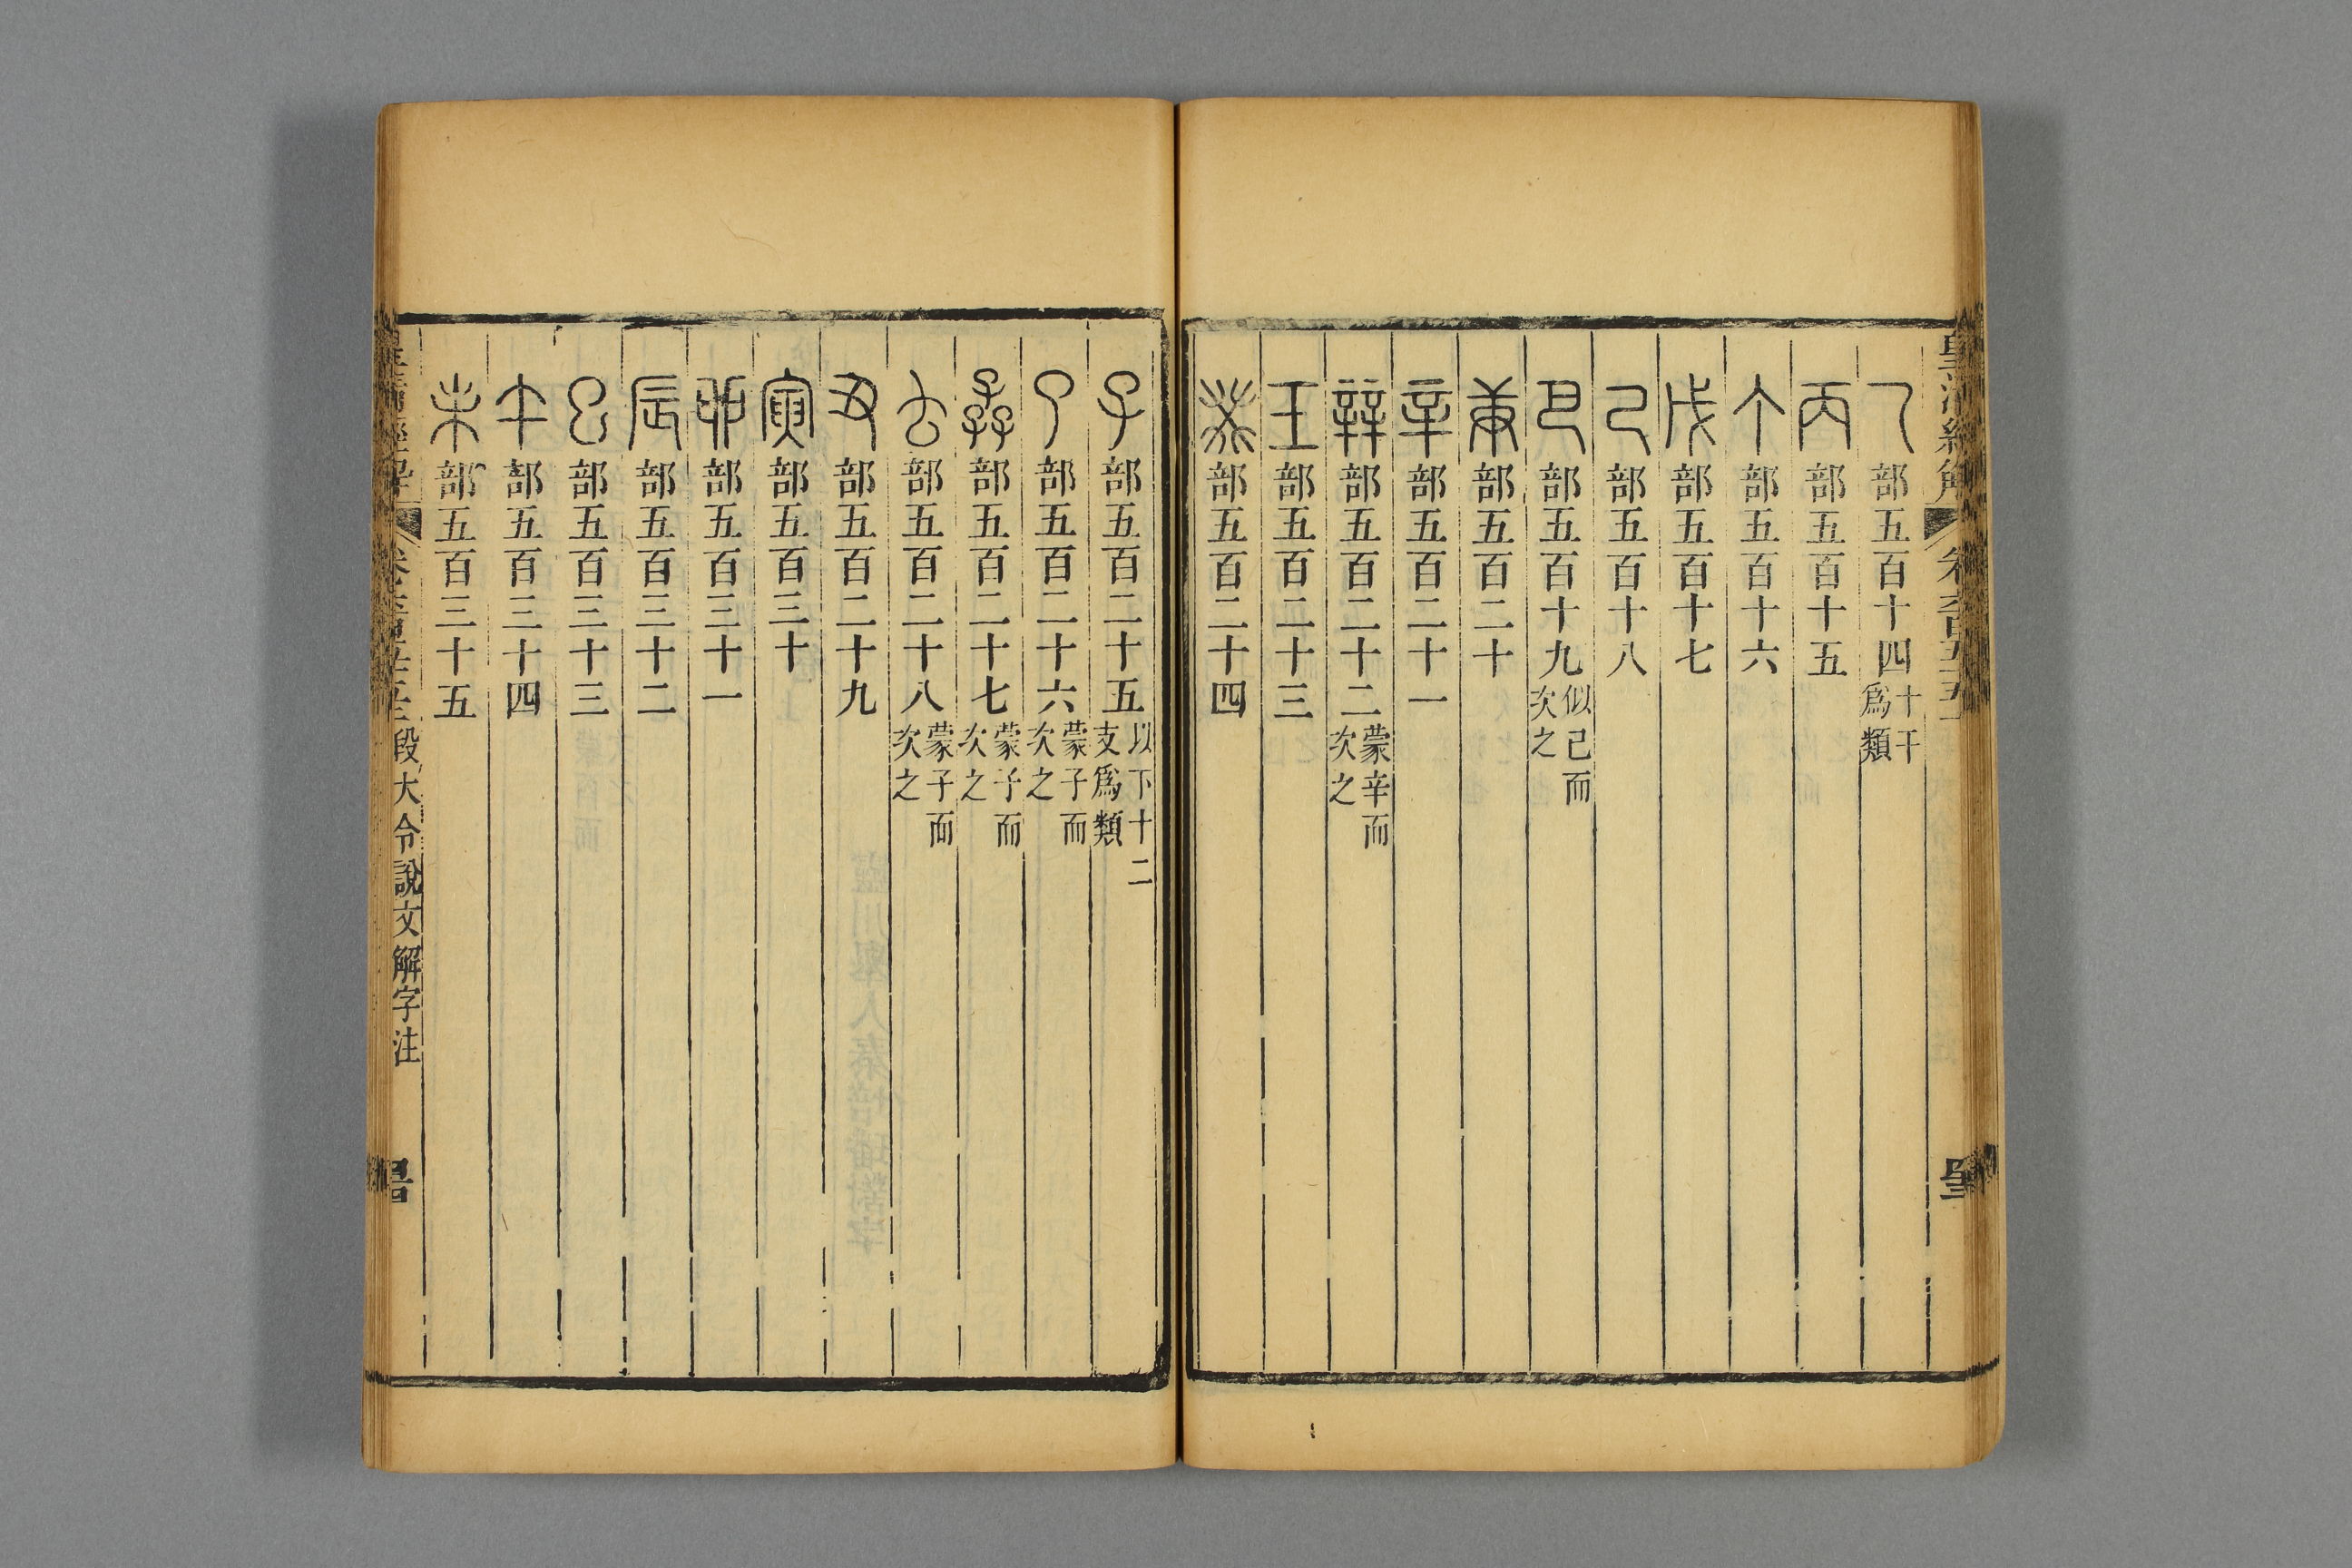 乙部五百十四十干爲類
丙部五百十五
个部五百十六
戊部五百十七
己部五百十八
巴部五百十九似己而次之
庚部五百二十
辛部五百二十一
辡部五百二十二蒙辛而次之
壬部五百二十三
癸部五百二十四
子部五百二十五以下十二支爲類
了部五百二十六蒙子而次之
孨部五百二十七蒙子而次之
𠫓部五百二十八蒙子而次之
丑部五百二十九
寅部五百三十
卯部五百三十一
辰部五百三十二
巳部五百三十三
午部五百三十四
未部五百三十五
段大令說文解字注